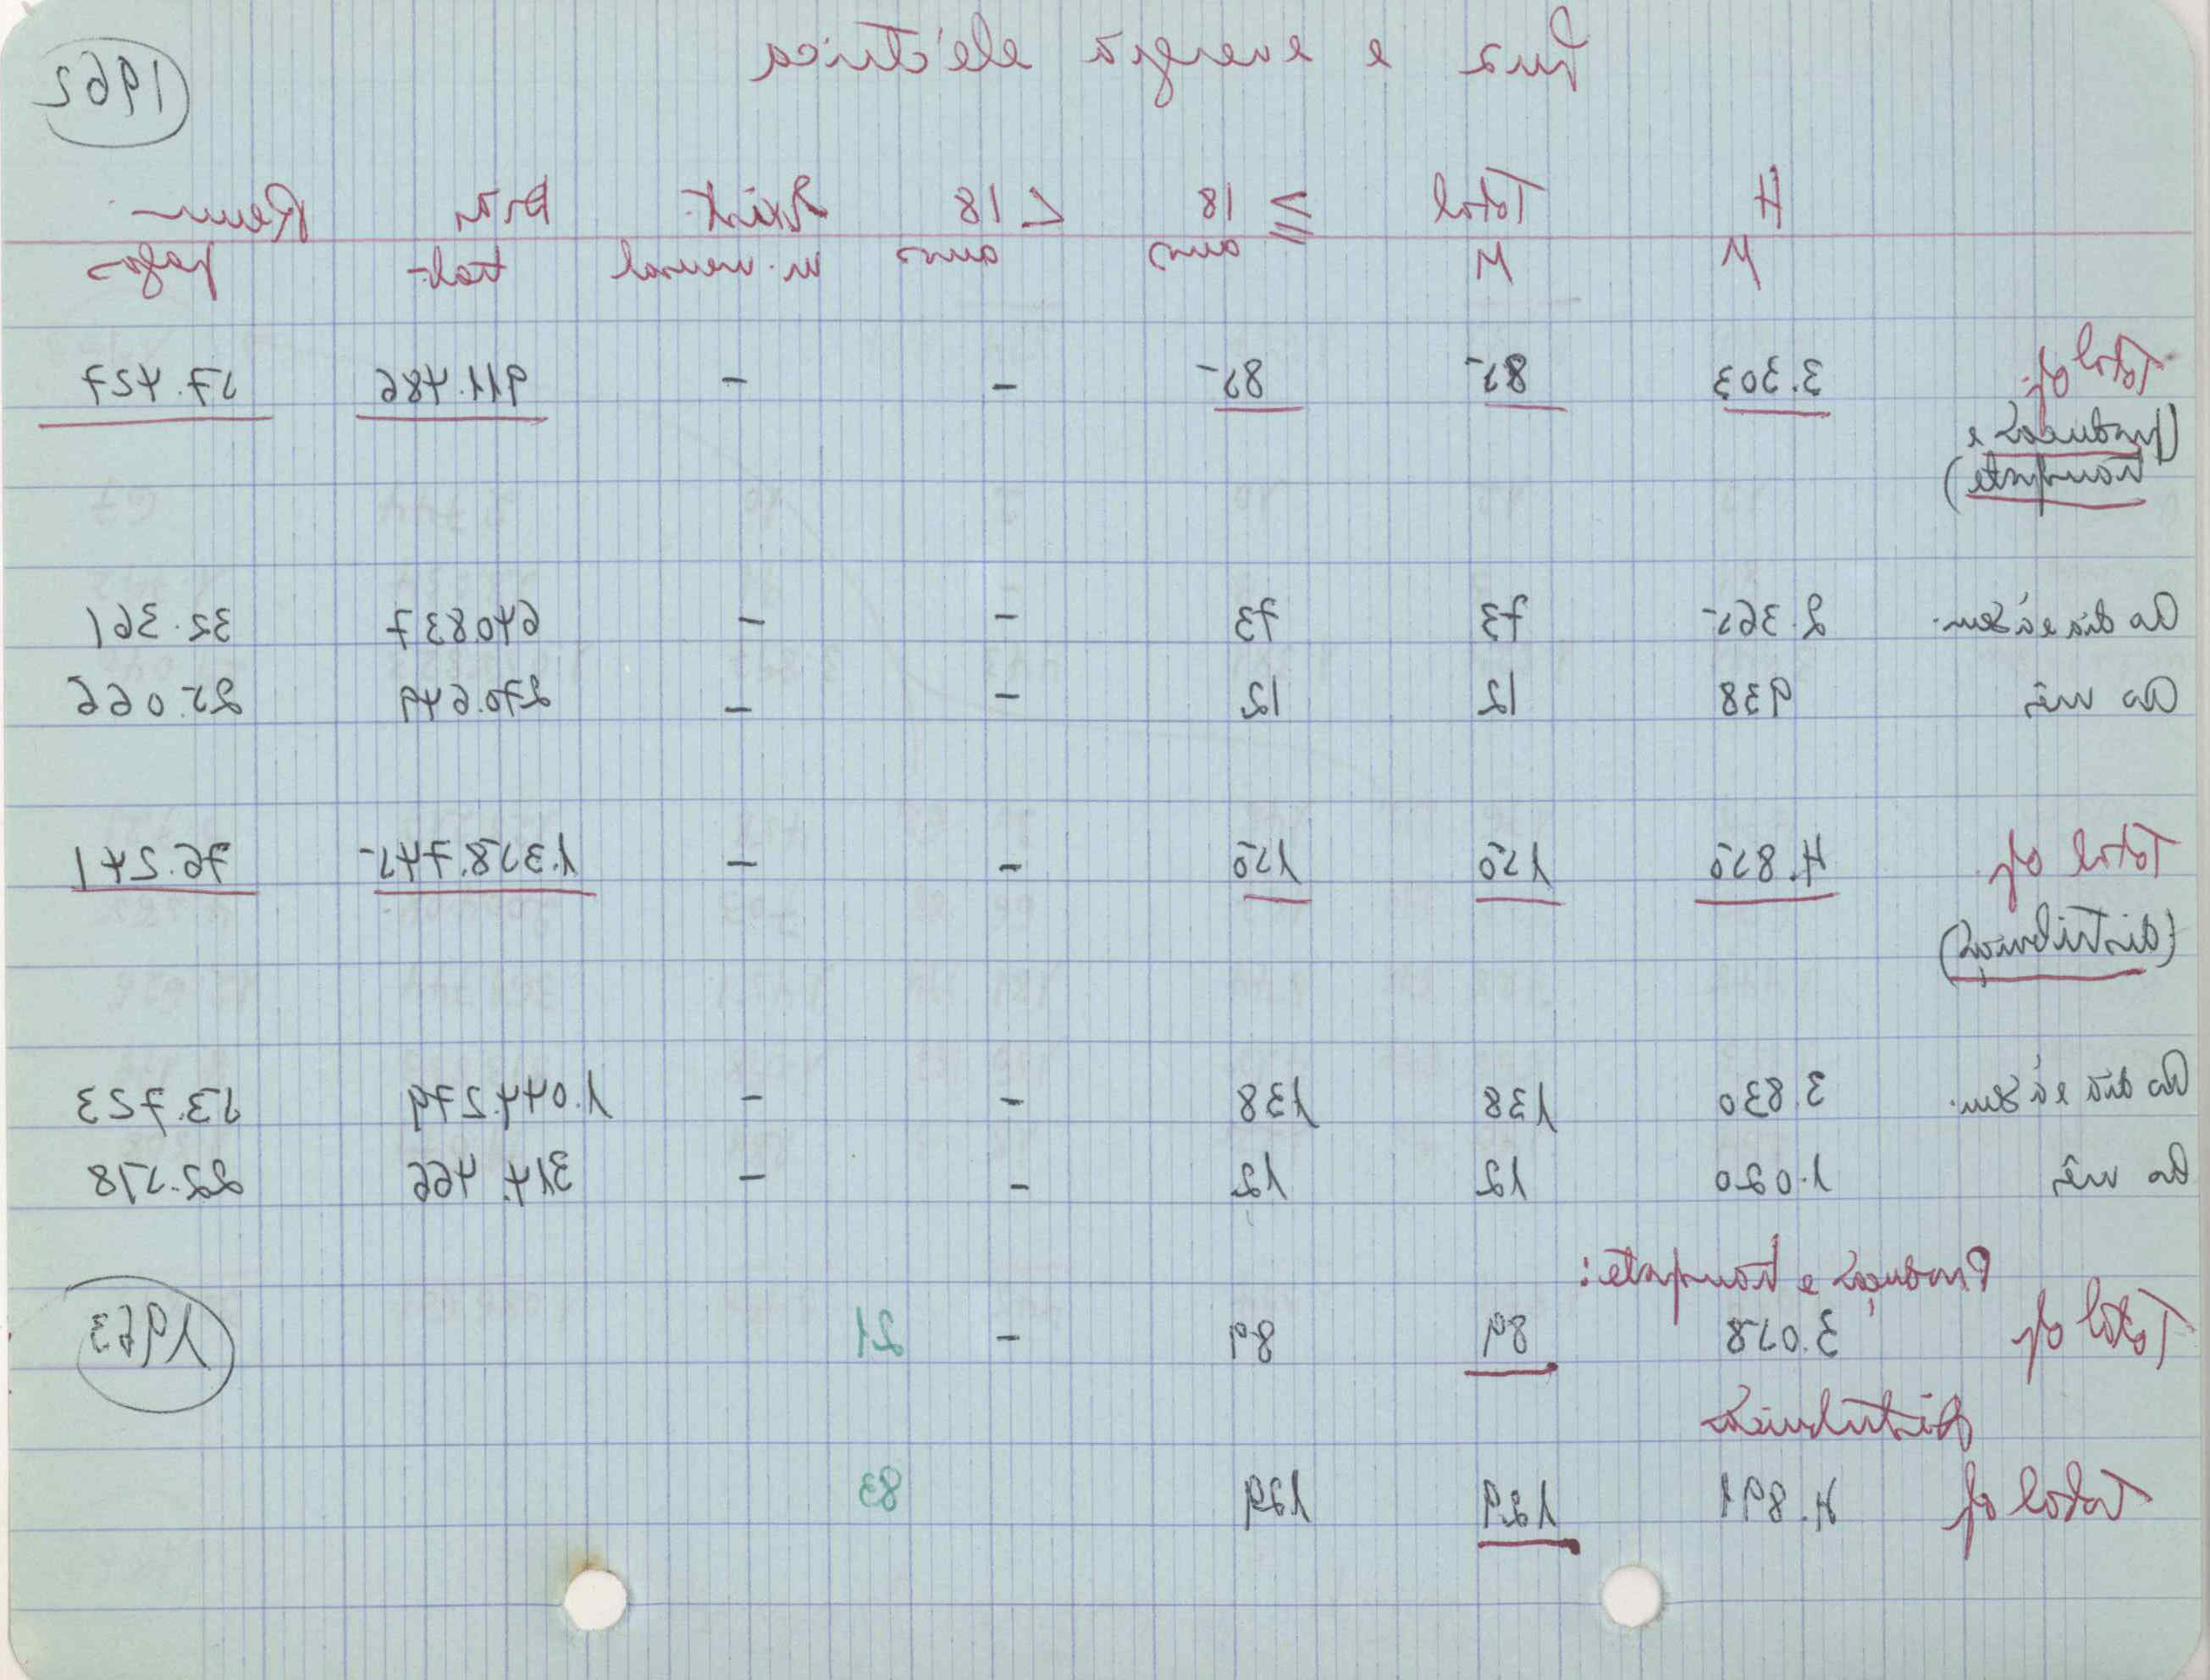 Luz e energia eléctrica
1962
H Total ≥ 18 < 18 Exist. Dias Remun
M M anos anos m. mensal trab. pagas
Total of. 3.303 85 85 - - 911.486 57.427
(produção e
transporte)
Ao dia e à sem. 2.365 73 73 - - 640837 32.361
Ao mês 938 12 12 - - 270.649 25.066
Total of. 4.850 150 150 - - 1.358.745 76.241
(distribuição)
Ao dia e à sem. 3.830 138 138 - - 1.044.279 53.723
Ao mês 1.020 12 12 - - 314.466 22.518
Produção e transporte:
Total of 3.058 89 89 - 21 1963
Distribuição
Total of 4.891 129 129 83